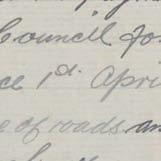 Council for
ce 1st. Apri
e of roads an